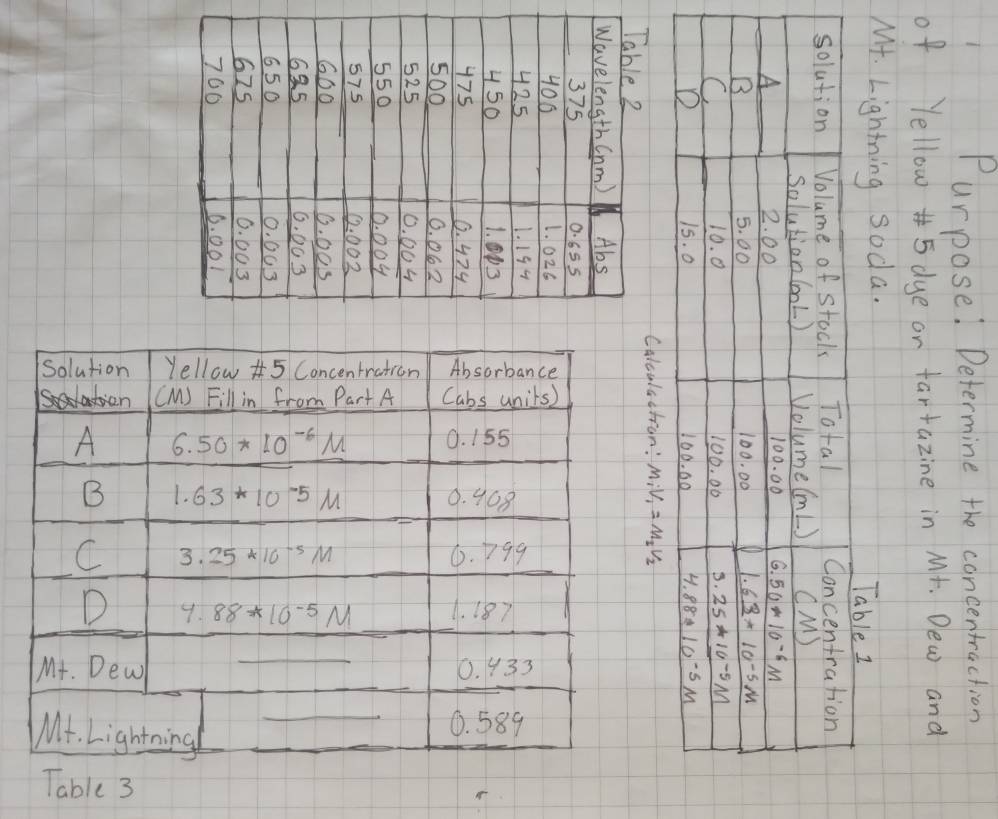 Purpose: Determine the concentraction
of Yellow #5 dye or tartazine in Mt. Dew and
Mt. Lightning soda.
Table 1
Solution Volume of Stock Solution (mL) Total Volume (mL) Concentration (M)
A 2.00 100.00 6.50*10⁻⁶ M
B 5.00 100.00 1.63*10⁻⁵ M
C 10.0 100.00 3.25*10⁻⁵ M
D 15.0 100.00 4.88*10⁻⁵ M
Calculaction: M₁V₁ = M₂V₂
Table 2
Wavelength (nm) Abs
375 0.655
400 1.026
425 1.194
450 1.003
475 0.474
500 0.062
525 0.004
550 0.004
575 0.002
600 0.003
625 0.003
650 0.003
675 0.003
700 0.001
Solution Yellow #5 Concentration Absorbance
(M) Fill in from Part A (abs units)
A 6.50*10⁻⁶ M 0.155
B 1.63*10⁻⁵ M 0.408
C 3.25*10⁻⁵ M 0.799
D 4.88*10⁻⁵ M 1.187
Mt. Dew 0.433
Mt. Lightning 0.589
Table 3